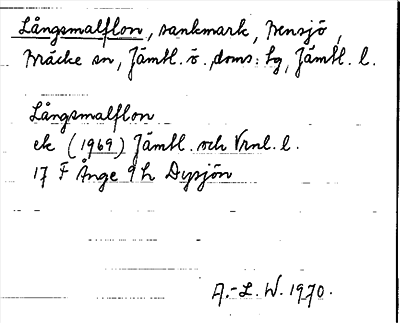 Långsmalflon, sankmark, Bensjö,
Bräcke sn, Jämtl. ö. doms: bg, Jämtl. l.
Långsmalflon
ek (1969) Jämtl. och Vrnl. l.
17 F Ånge 9 h Dysjön
A.-L. W. 1970.